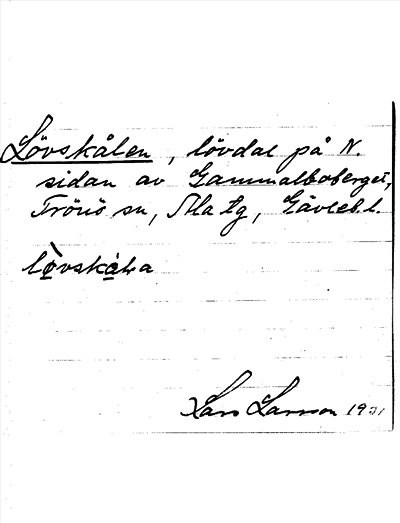 Lövskålen, lövdal på N.
sidan av Gammalboberget,
Trönö sn, Ala tg, Gävleb. l.
lò̤vskål̤a
Lars Larsson 1931